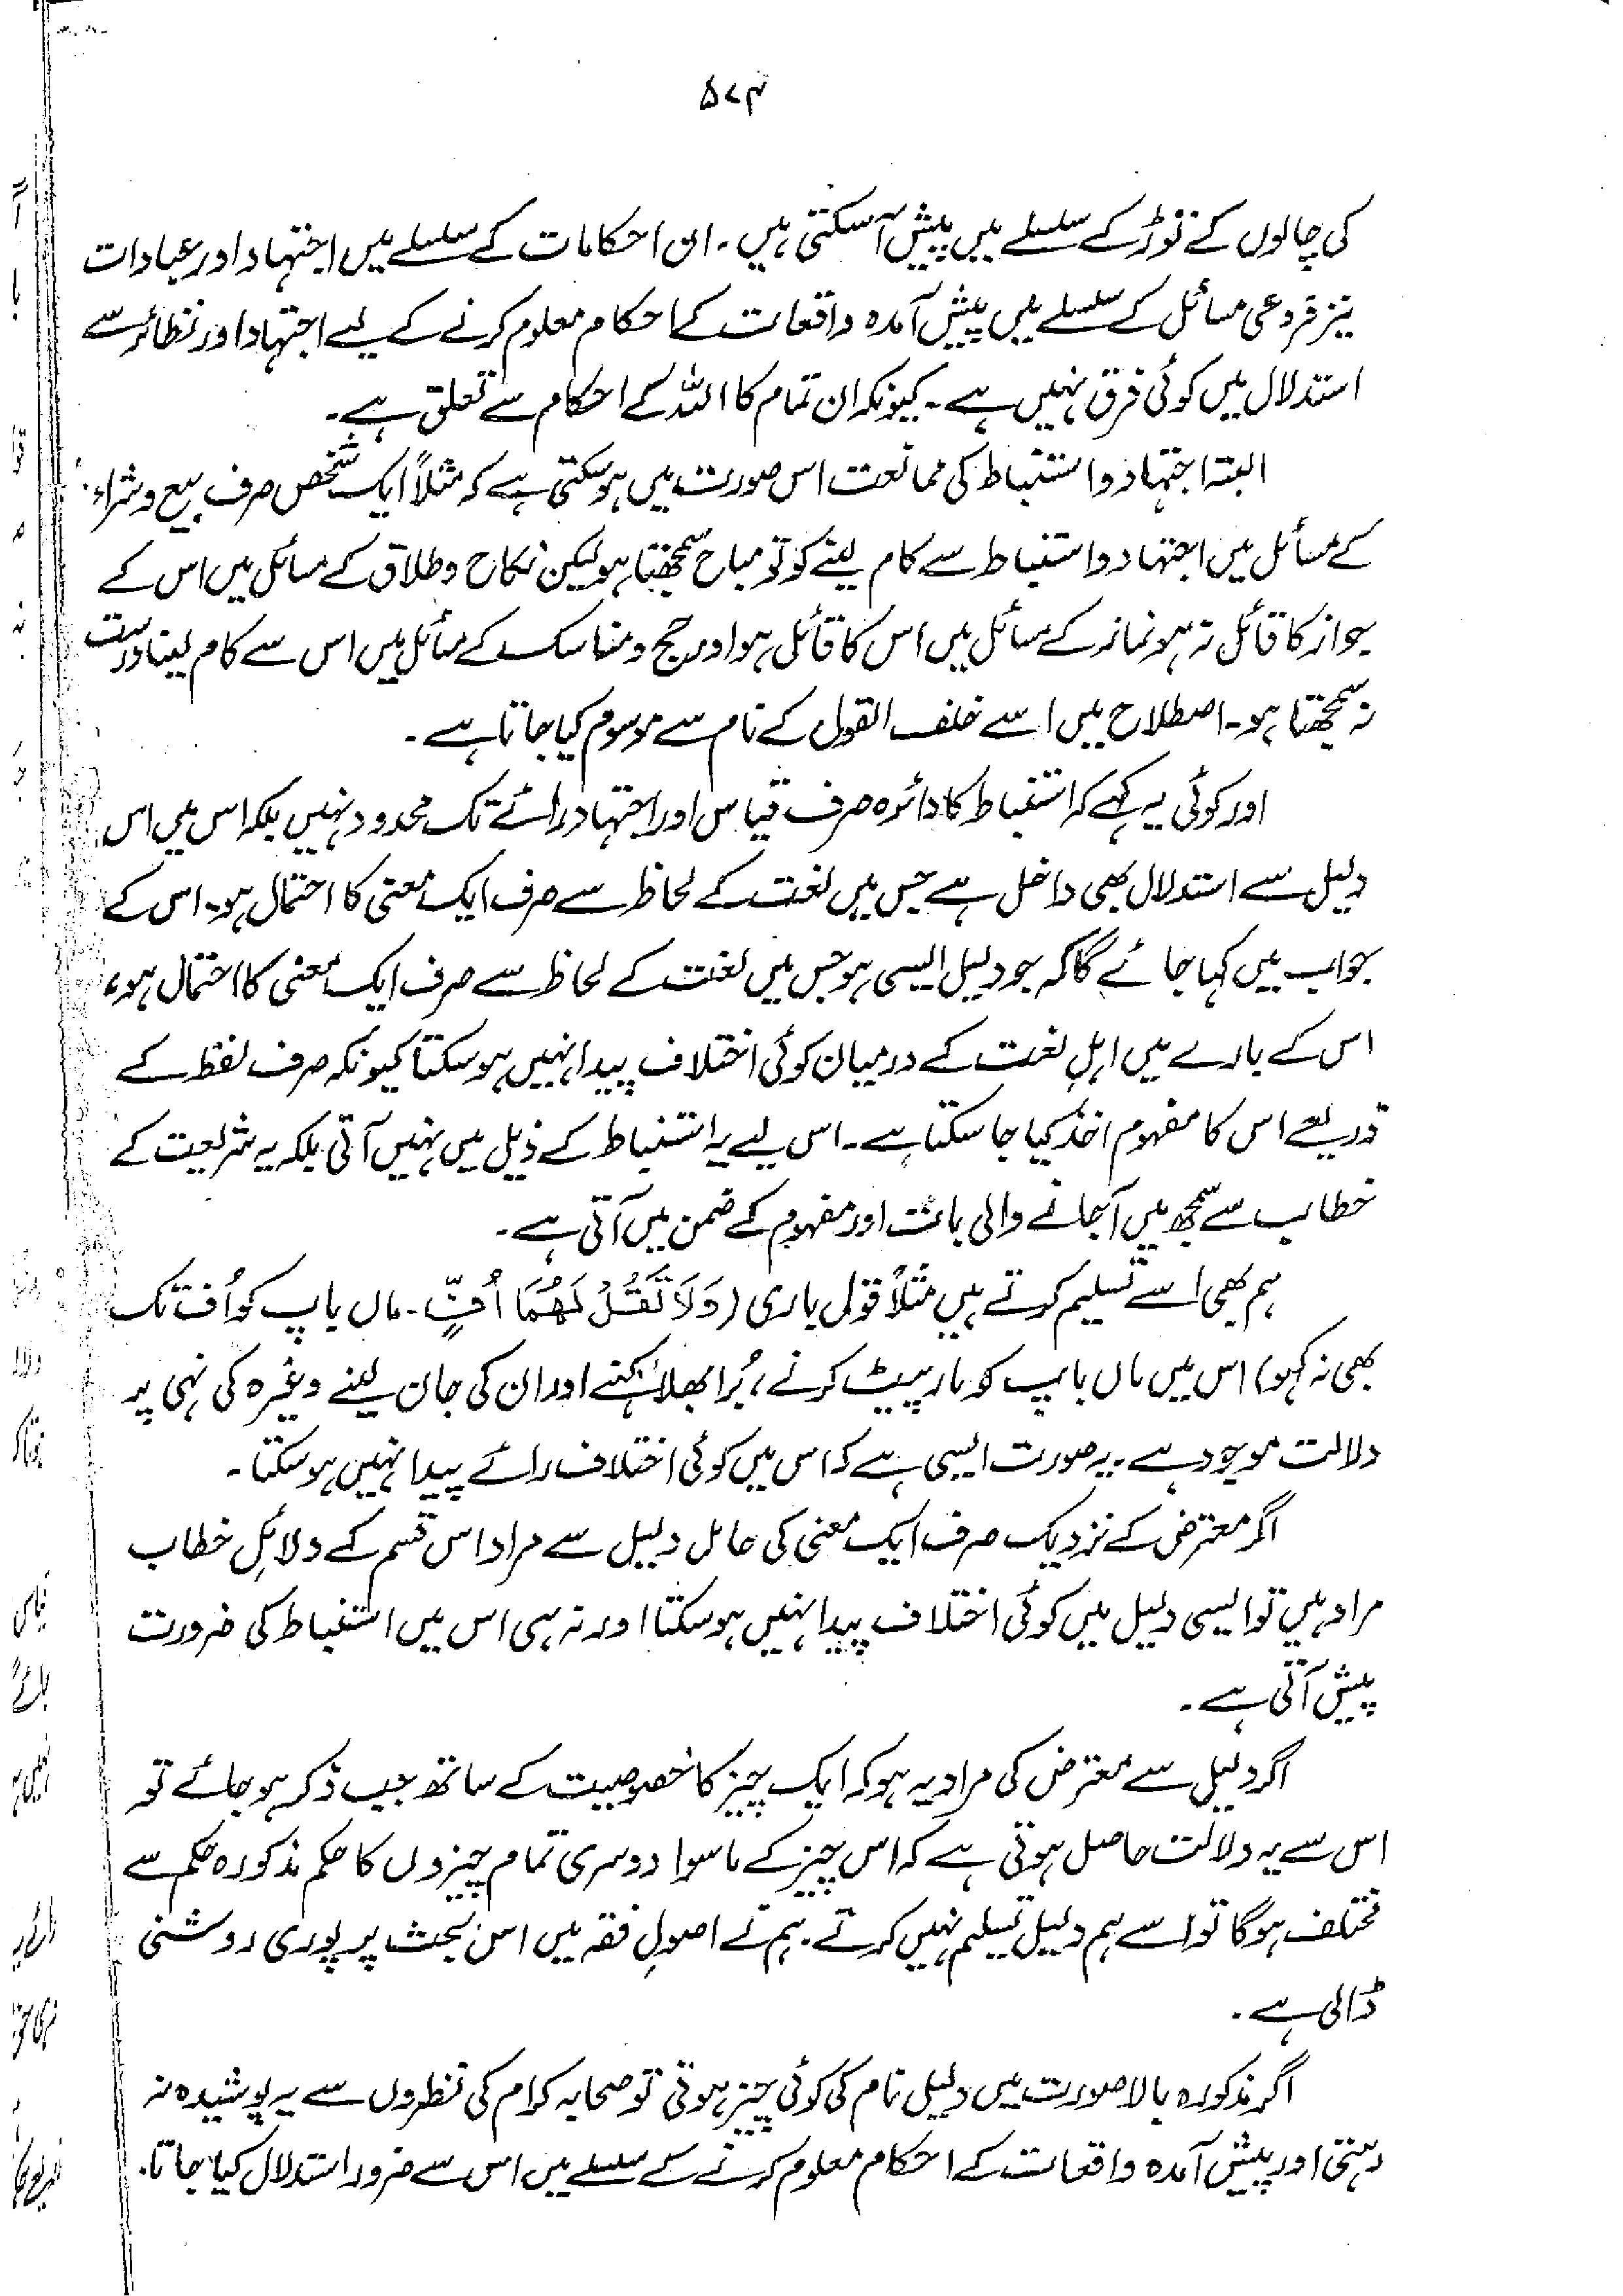 ۵۷۴
کی چالوں کے توڑ کے سلسلے میں پیش آسکتی ہیں۔ ان احکامات کے سلسلے میں اجتہاد اور عبادات
نیز فروعی مسائل کے سلسلے میں پیش آمدہ واقعات کے احکام معلوم کرنے کے لیے اجتہاد اور نظائر سے
استدلال میں کوئی فرق نہیں ہے۔ کیونکہ ان تمام کا اللہ کے احکام سے تعلق ہے۔
البتہ اجتہاد و استنباط کی ممانعت اس صورت میں ہوسکتی ہے کہ مثلاً ایک شخص صرف بیع و شراء
کے مسائل میں اجتہاد و استنباط سے کام لینے کو تو مباح سمجھتا ہو لیکن نکاح و طلاق کے مسائل میں اس کے
جواز کا قائل نہ ہو نماز کے مسائل میں اس کا قائل ہو اور حج و مناسک کے مسائل میں اس سے کام لینا درست
نہ سمجھتا ہو۔ اصطلاح میں اسے خلف القول کے نام سے موسوم کیا جاتا ہے۔
اور کوئی یہ کہے کہ استنباط کا دائرہ صرف قیاس اور اجتہاد رائے تک محدود نہیں بلکہ اس میں اس
دلیل سے استدلال بھی داخل ہے جس میں لغت کے لحاظ سے صرف ایک معنی کا احتمال ہو۔ اس کے
جواب میں کہا جائے گا کہ جو دلیل ایسی ہو جس میں لغت کے لحاظ سے صرف ایک معنی کا احتمال ہو،
اس کے بارے میں اہلِ لغت کے درمیان کوئی اختلاف پیدا نہیں ہوسکتا کیونکہ صرف لفظ کے
ذریعے اس کا مفہوم اخذ کیا جا سکتا ہے۔ اس لیے یہ استنباط کے ذیل میں نہیں آتی بلکہ یہ شریعت کے
خطاب سے سمجھ میں آجانے والی بات اور مفہوم کے ضمن میں آتی ہے۔
ہم بھی اسے تسلیم کرتے ہیں مثلاً قول باری (وَلَا تَقُلْ لَهُمَا اُفٍّ۔ ماں باپ کو اُف تک
بھی نہ کہو) اس میں ماں باپ کو مار پیٹ کرنے، بُرا بھلا کہنے اور ان کی جان لینے وغیرہ کی نہی پر
دلالت موجود ہے۔ یہ صورت ایسی ہے کہ اس میں کوئی اختلاف رائے پیدا نہیں ہوسکتا۔
اگر معترض کے نزدیک صرف ایک معنی کی حامل دلیل سے مراد اس قسم کے دلائلِ خطاب
مراد ہیں تو ایسی دلیل میں کوئی اختلاف پیدا نہیں ہوسکتا اور نہ ہی اس میں استنباط کی ضرورت
پیش آتی ہے۔
اگر دلیل سے معترض کی مراد یہ ہو کہ ایک چیز کا خصوصیت کے ساتھ جب ذکر ہو جائے تو
اس سے یہ دلالت حاصل ہوتی ہے کہ اس چیز کے ماسوا دوسری تمام چیزوں کا حکم مذکورہ حکم سے
مختلف ہوگا تو اسے ہم دلیل تسلیم نہیں کرتے۔ ہم نے اصولِ فقہ میں اس بحث پر پوری روشنی
ڈالی ہے۔
اگر مذکورہ بالا صورت میں دلیل نام کی کوئی چیز ہوتی تو صحابہ کرام کی نظروں سے یہ پوشیدہ نہ
رہتی اور پیش آمدہ واقعات کے احکام معلوم کرنے کے سلسلے میں اس سے ضرور استدلال کیا جاتا۔